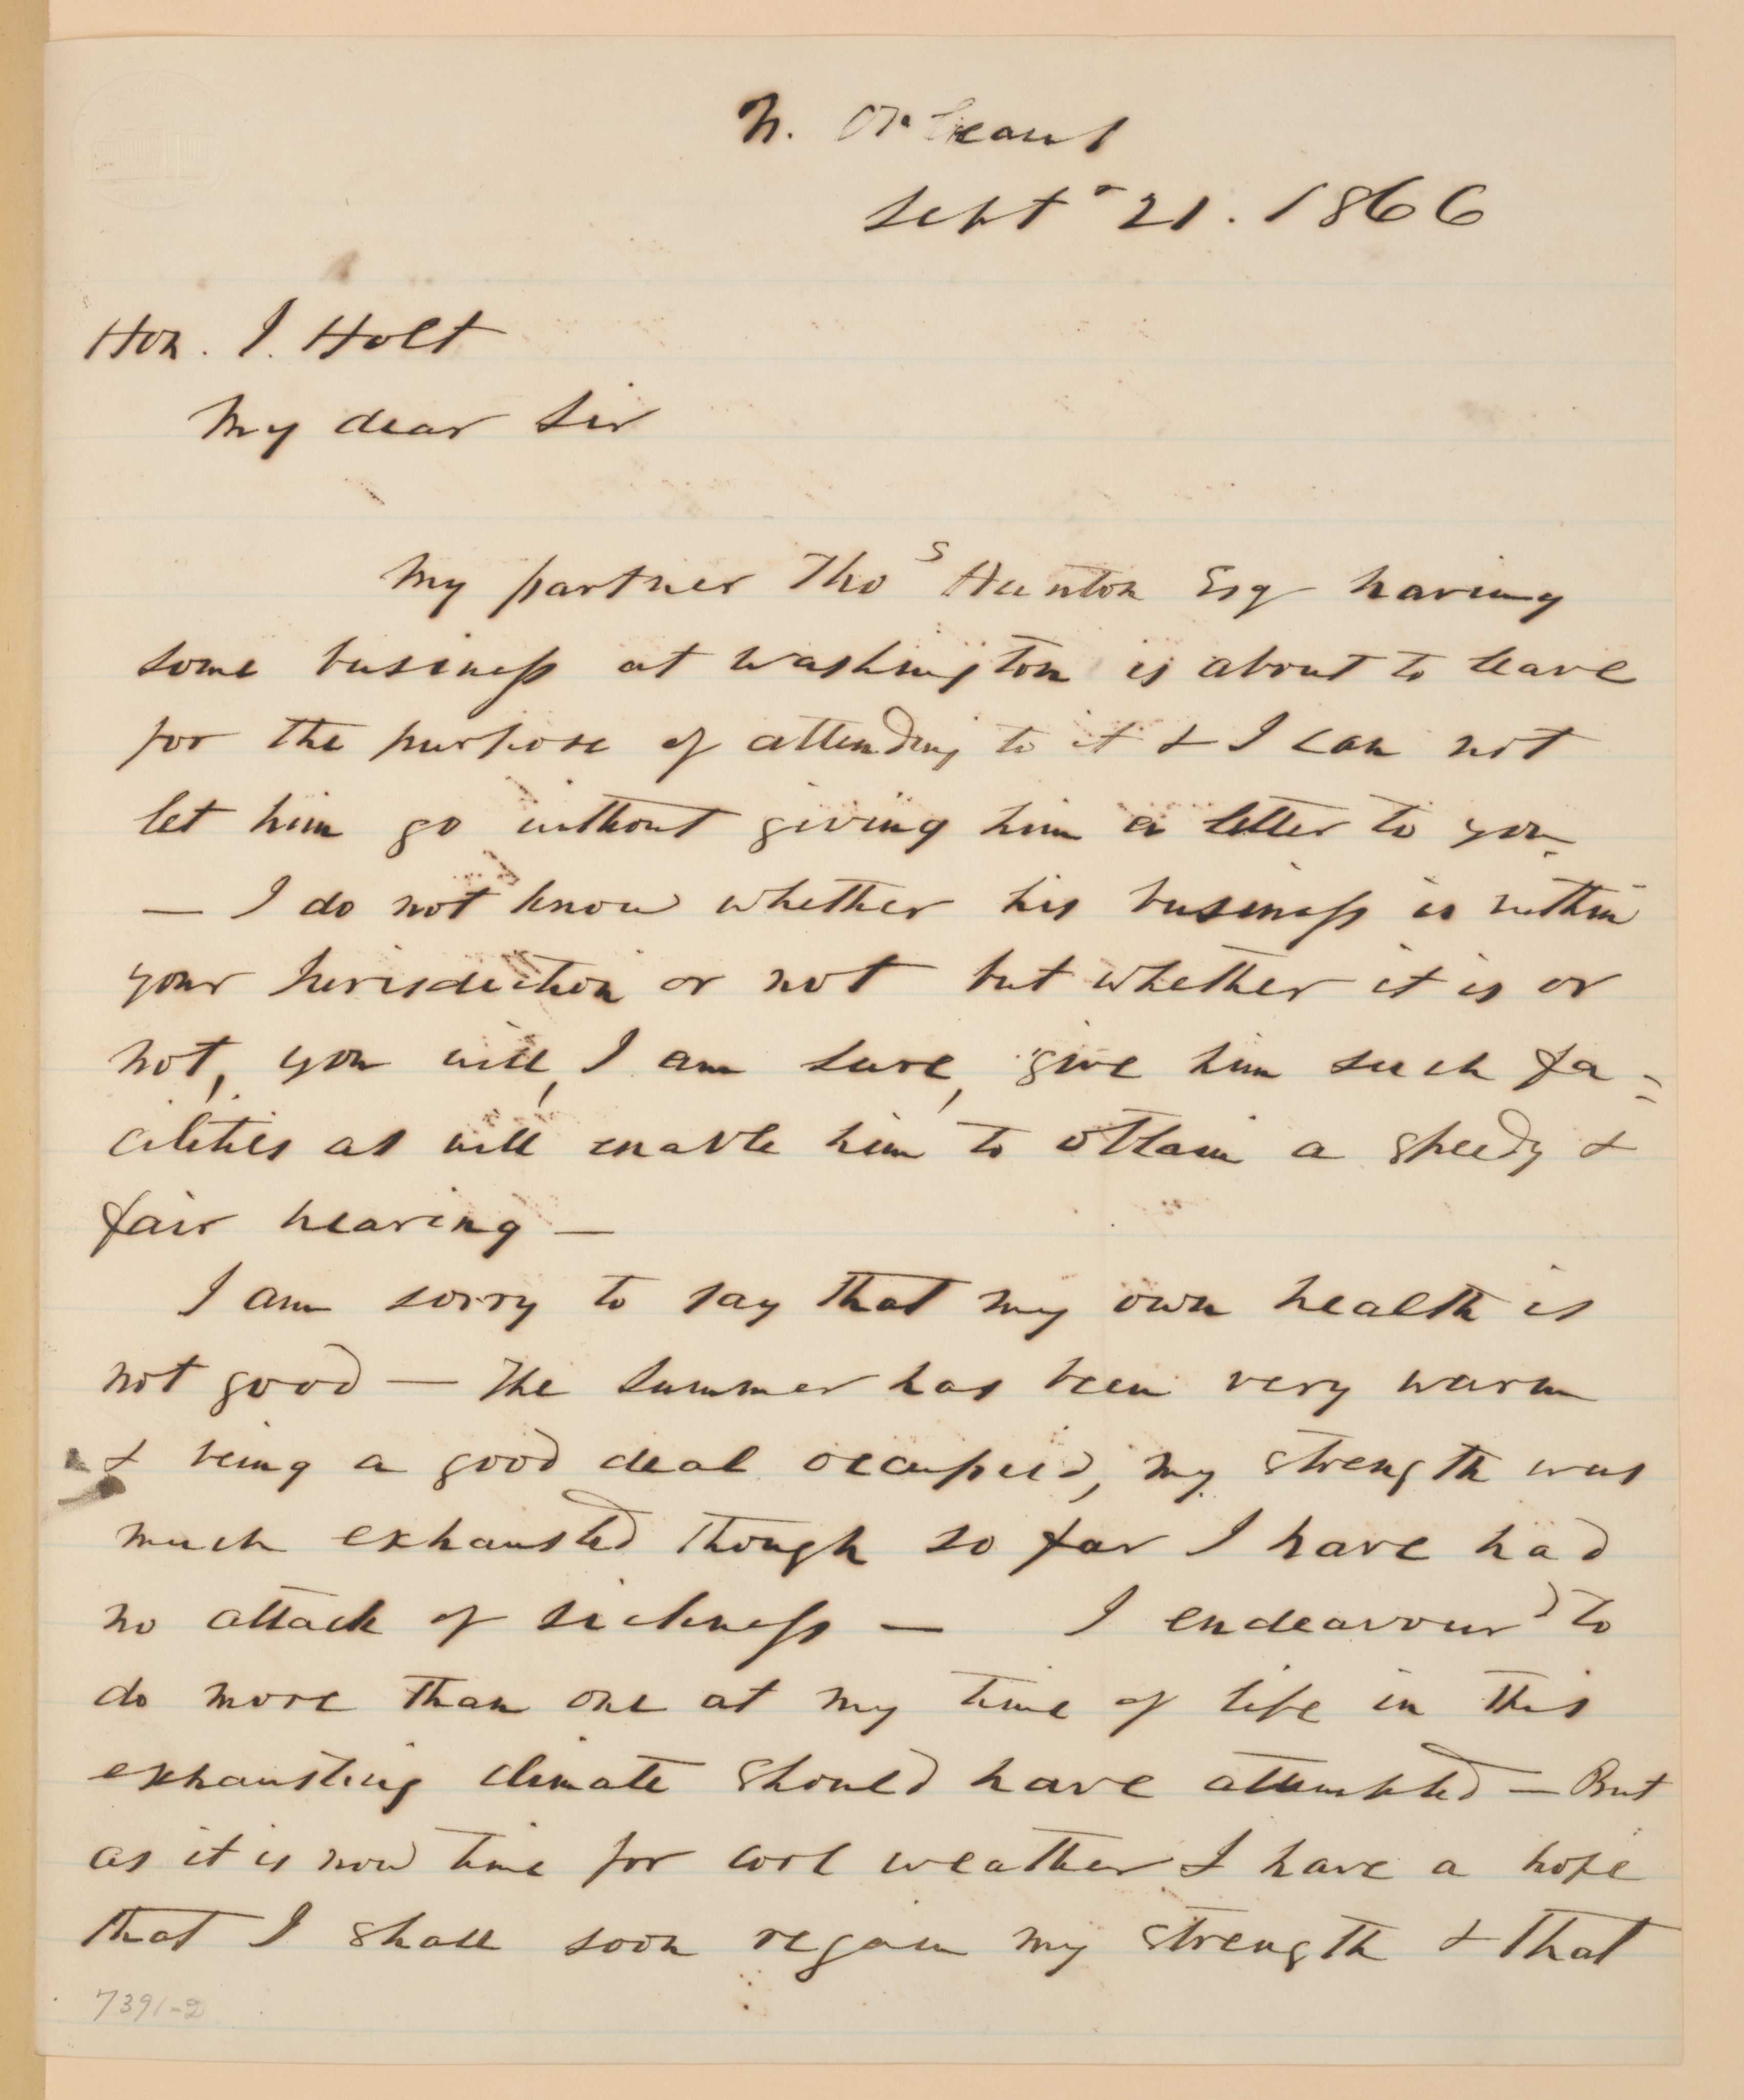 N. Orleans
Sept 21. 1866
Hon. J. Holt
My dear Sir
My partner Thos Hunton Esq having
some business at Washington is about to leave
for the purpose of attending to it & I can not
let him go without giving him a letter to you
— I do not know whether his business is within
your Jurisdiction or not but whether it is or
not, you will, I am sure, give him such fa=
cilities as will enable him to obtain a speedy &
fair hearing —
I am sorry to say that my own health is
not good — The summer has been very warm
& being a good deal occupied, my strength was
much exhausted though so far I have had
no attack of sickness — I endeavourd to
do more than one at my time of life in this
exhausting climate should have attempted — But
as it is now time for cool weather I have a hope
that I shall soon regain my strength & that
7391-2